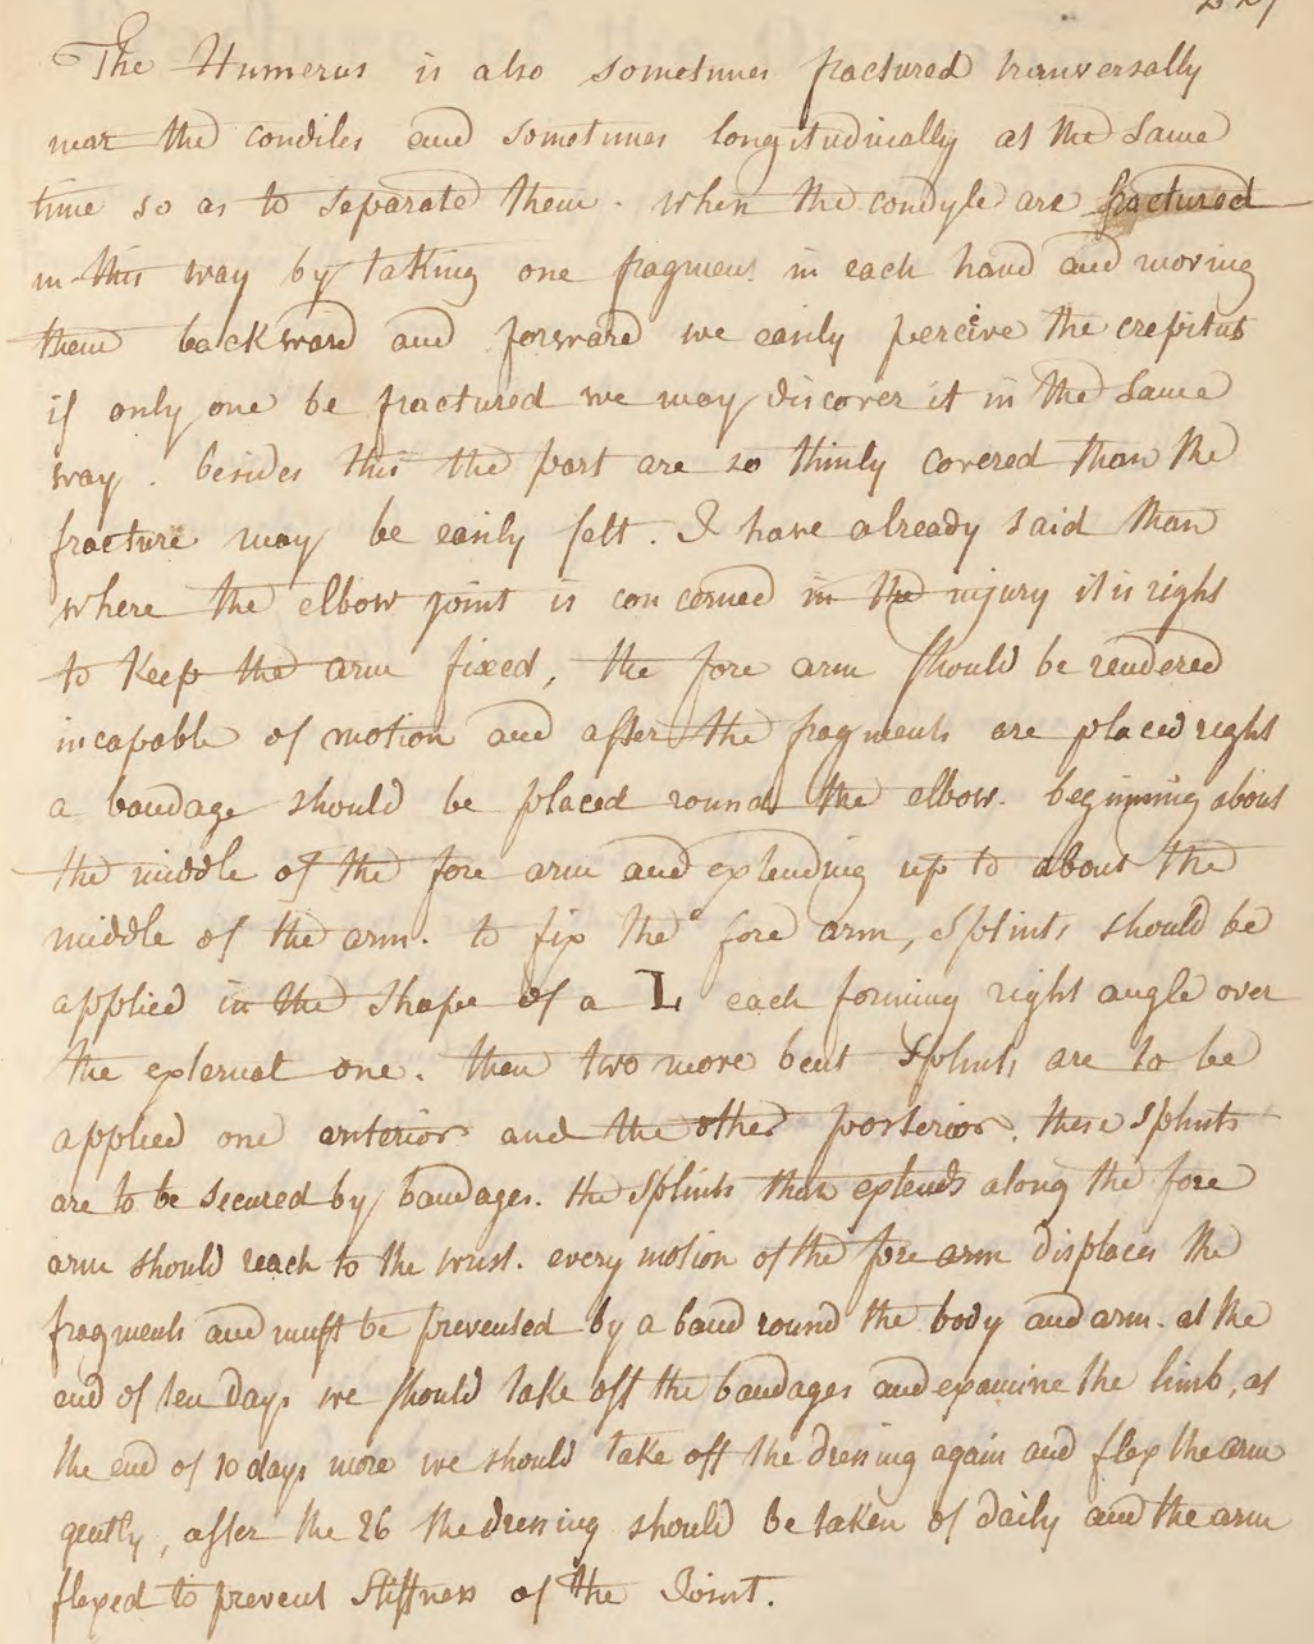 The Humerus is also sometimes fractured transversally
near the condiles and sometimes longitudinally at the same
time so as to separate them. when the condyle are fractured
in this way by taking one fragment in each hand and moving
them backward and forward we easily perceive the crepitus
if only one be fractured we may discover it in the same
way. besides this the part are so thinly covered that the
fracture may be easily felt. I have already said that
where the elbow joint is concerned in the injury it is right
to keep the arm fixed, the fore arm should be rendered
incapable of motion and after the fragments are placed right
a bandage should be placed round the elbow. beginning about
the middle of the fore arm and extending up to about the
middle of the arm. to fix the fore arm, splints should be
applied in the shape of a L each forming right angle over
the external one. then two more bent splints are to be
applied one anterior and the other posterior. these splints
are to be secured by bandages. the splints that extends along the fore
arm should reach to the wrist. every motion of the fore arm displaces the
fragments and must be prevented by a band round the body and arm. at the
end of ten days we should take off the bandages and examine the limb, at
the end of 10 days more we should take off the dressing again and flex the arm
gently, after the 26 the dressing should be taken of daily and the arm
flexed to prevent stiffness of the Joint.